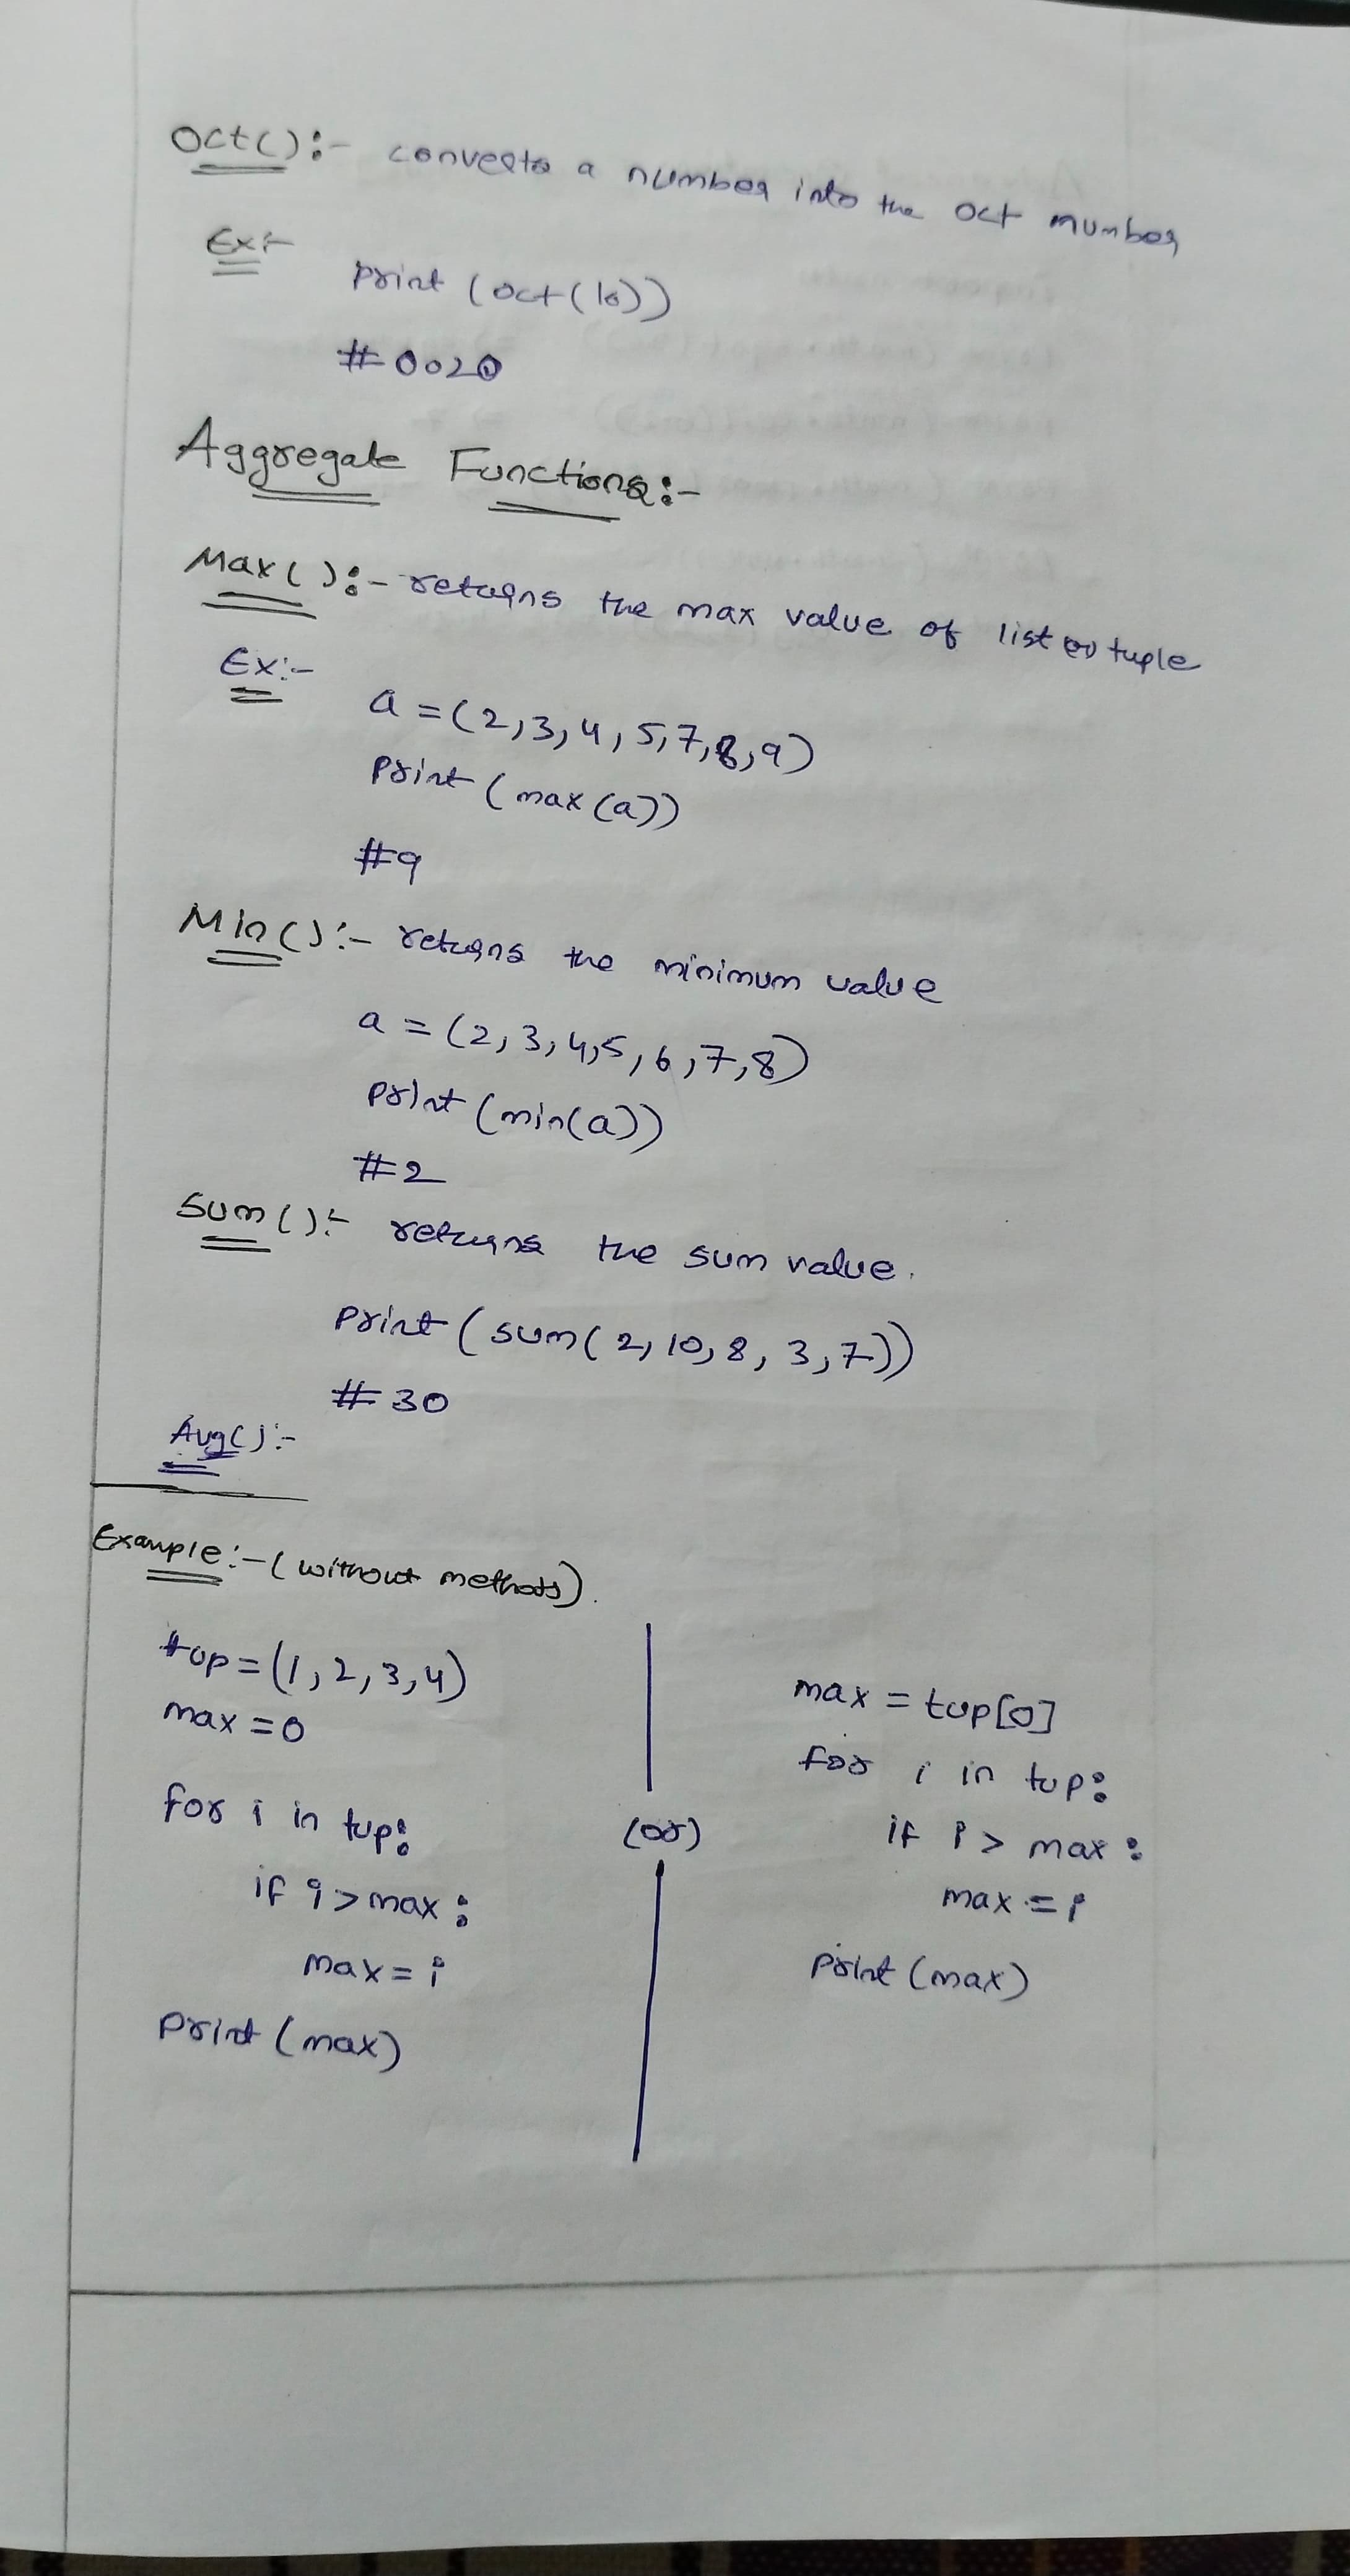 Oct():- converts a number into the oct number
Ex:-
print (oct(16))
#0o20
Aggregate Functions:-
Max():- returns the max value of list or tuple
Ex:-
a = (2,3,4,5,7,8,9)
print (max(a))
#9
Min():- returns the minimum value
a = (2,3,4,5,6,7,8)
print (min(a))
#2
Sum():- returns the sum value.
print (sum(2,10,8,3,7))
#30
Avg():-
Example:- (without methods).
tup=(1,2,3,4)
max=0
for i in tup:
if i>max:
max=i
print (max)
(or)
max = tup[0]
for i in tup:
if i > max:
max = i
print (max)